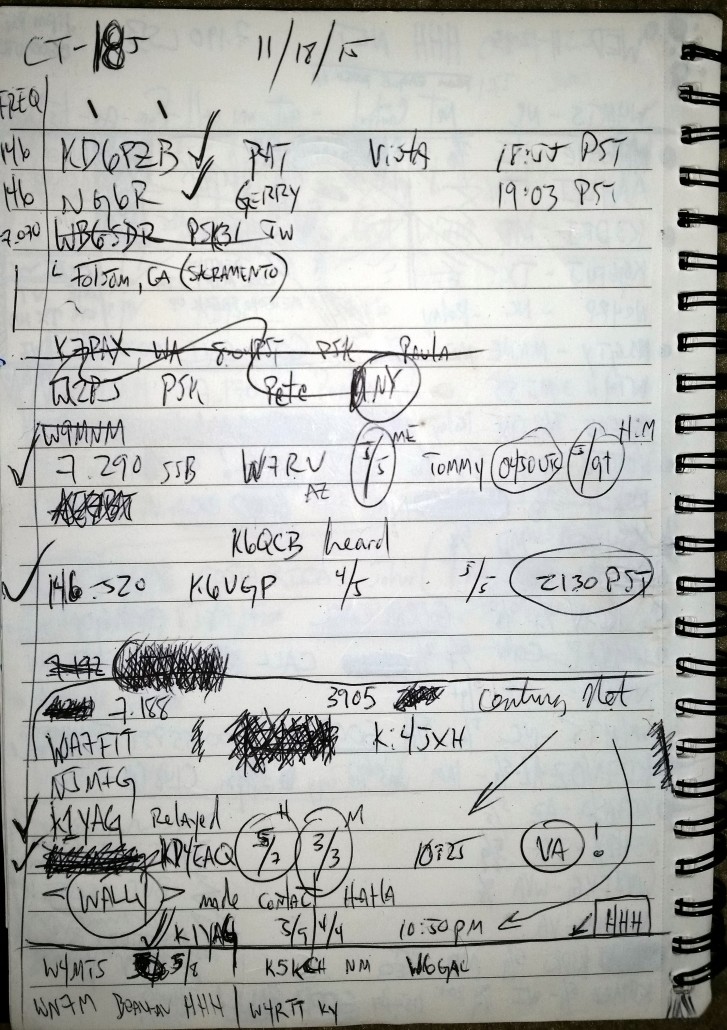 11/18/15
FREQ
146 KD6PZB PAT VistA PST
146 NG6R GERRY 19:03 PST
7.070 WB6SDR PSK31
Folsom, CA (SACRAMENTO)
K7PAX, WA PST PSK Paula
PSK Pete NY
W9MNM
ME H.M
7.290 SSB W7RV 5/5 Tommy
AZ
K6QCB heard
146.520 K6VGP 4/5 5/5 2130 PST
7.188 3905 Century Net
WA7FTT K:4JXH
H M
K1YAG Relayed
KD4EAQ 5/7 3/3 VA !
WALLY made contact
K1YAG 3/9 4/4 10:50 PM HHH
W4MTS 5/8 K5KCH NM W6GAC
WN7M HHH W4RTT KY